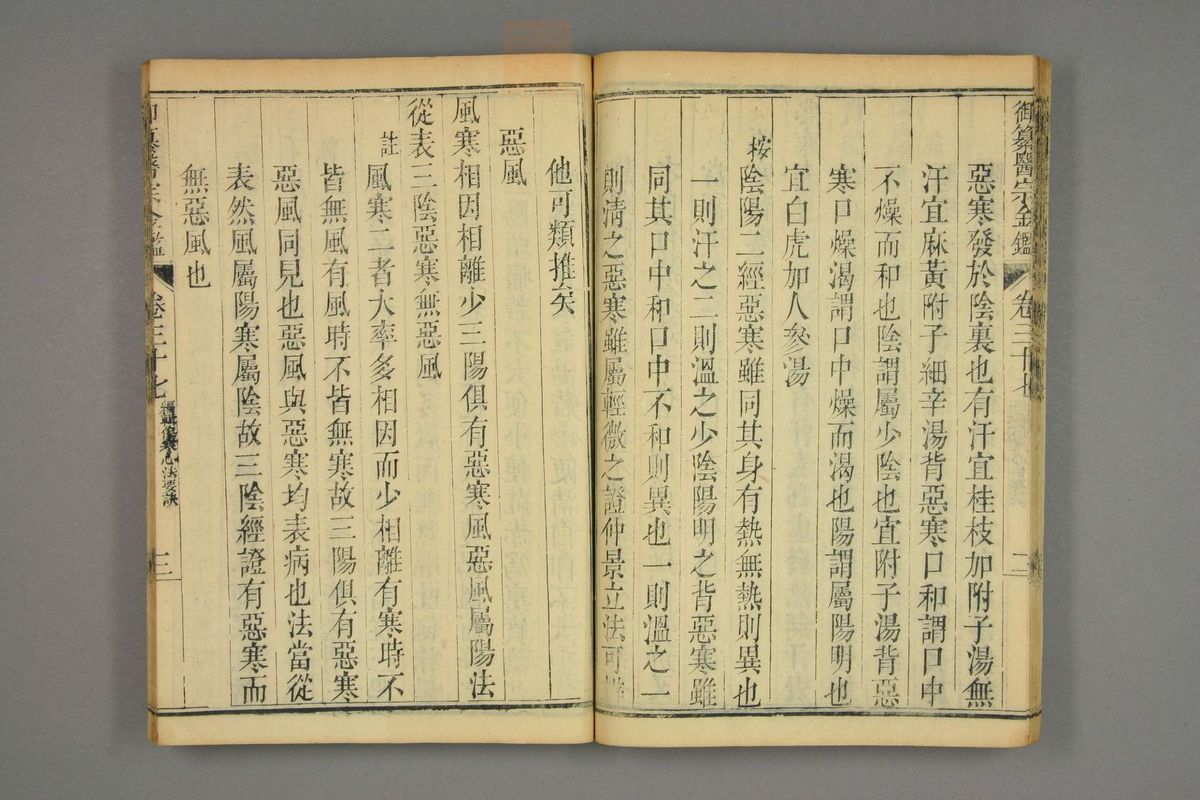 御纂醫宗金鑑 卷三十七 二
惡寒發於陰裏也有汗宜桂枝加附子湯無
汗宜麻黃附子細辛湯背惡寒口和謂口中
不燥而和也陰謂屬少陰也宜附子湯背惡
寒口燥渴謂口中燥而渴也陽謂屬陽明也
宜白虎加人參湯
按陰陽二經惡寒雖同其身有熱無熱則異也
一則汗之二則溫之少陰陽明之背惡寒雖
同其口中和口中不和則異也一則溫之一
則淸之惡寒雖屬輕微之證仲景立法可
他可類推矣
惡風
風寒相因相離少三陽俱有惡寒風惡風屬陽法
從表三陰惡寒無惡風
註風寒二者大率多相因而少相離有寒時不
皆無風有風時不皆無寒故三陽俱有惡寒
惡風同見也惡風與惡寒均表病也法當從
表然風屬陽寒屬陰故三陰經證有惡寒而
無惡風也
御纂醫宗金鑑 卷三十七 傷寒心法要訣 三